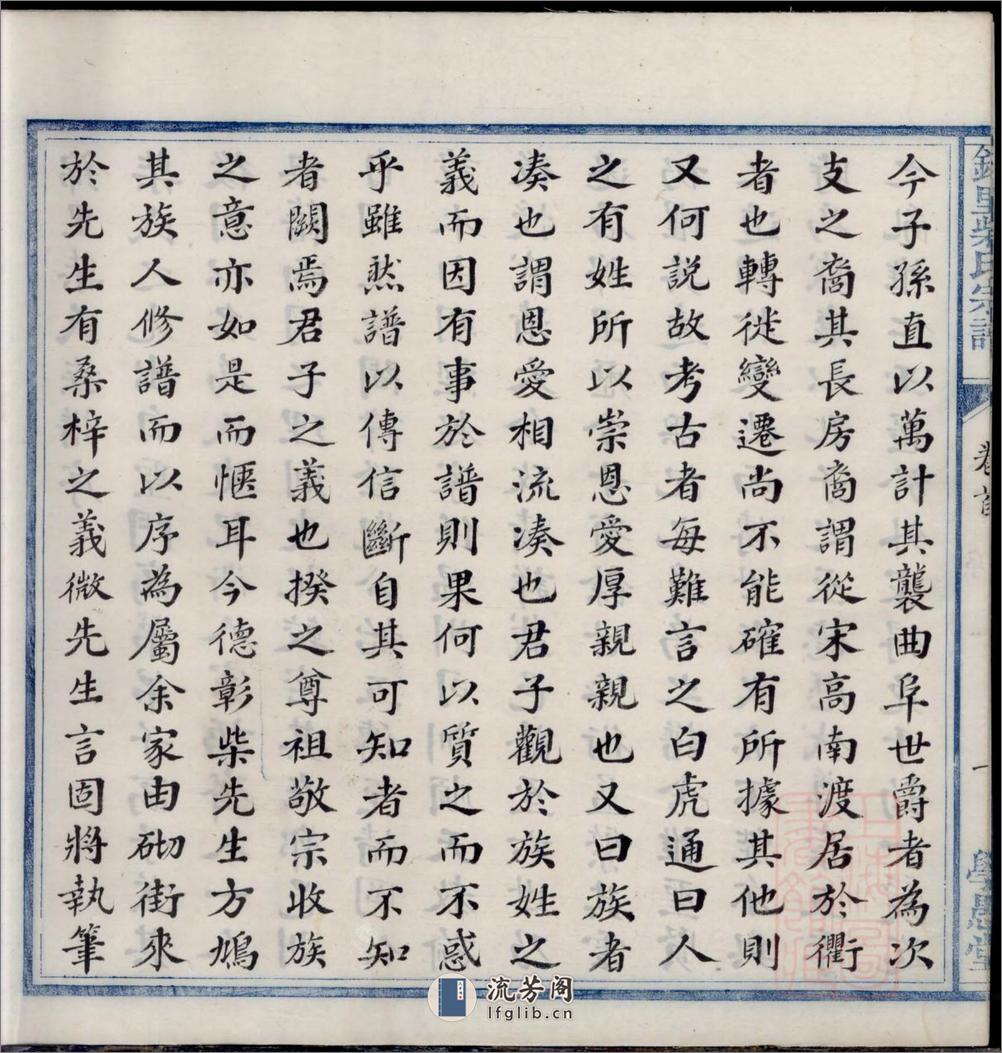 今子孫直以萬計其襲曲阜世爵者為次
支之裔其長房裔謂從宋高南渡居於衢
者也轉徙變遷尚不能確有所據其他則
又何説故考古者每難言之白虎通曰人
之有姓所以崇恩愛厚親親也又曰族者
凑也謂恩愛相流凑也君子觀於族姓之
義而因有事於譜則果何以質之而不惑
乎雖然譜以傳信斷自其可知者而不知
者闕焉君子之義也揆之尊祖敬宗收族
之意亦如是而愜耳今德彰柴先生方鳩
其族人修譜而以序為屬余家由砌街來
於先生有桑梓之義微先生言固將執筆
氏宗譜
卷首
一
學愚堂
流芳阁
lfglib.cn